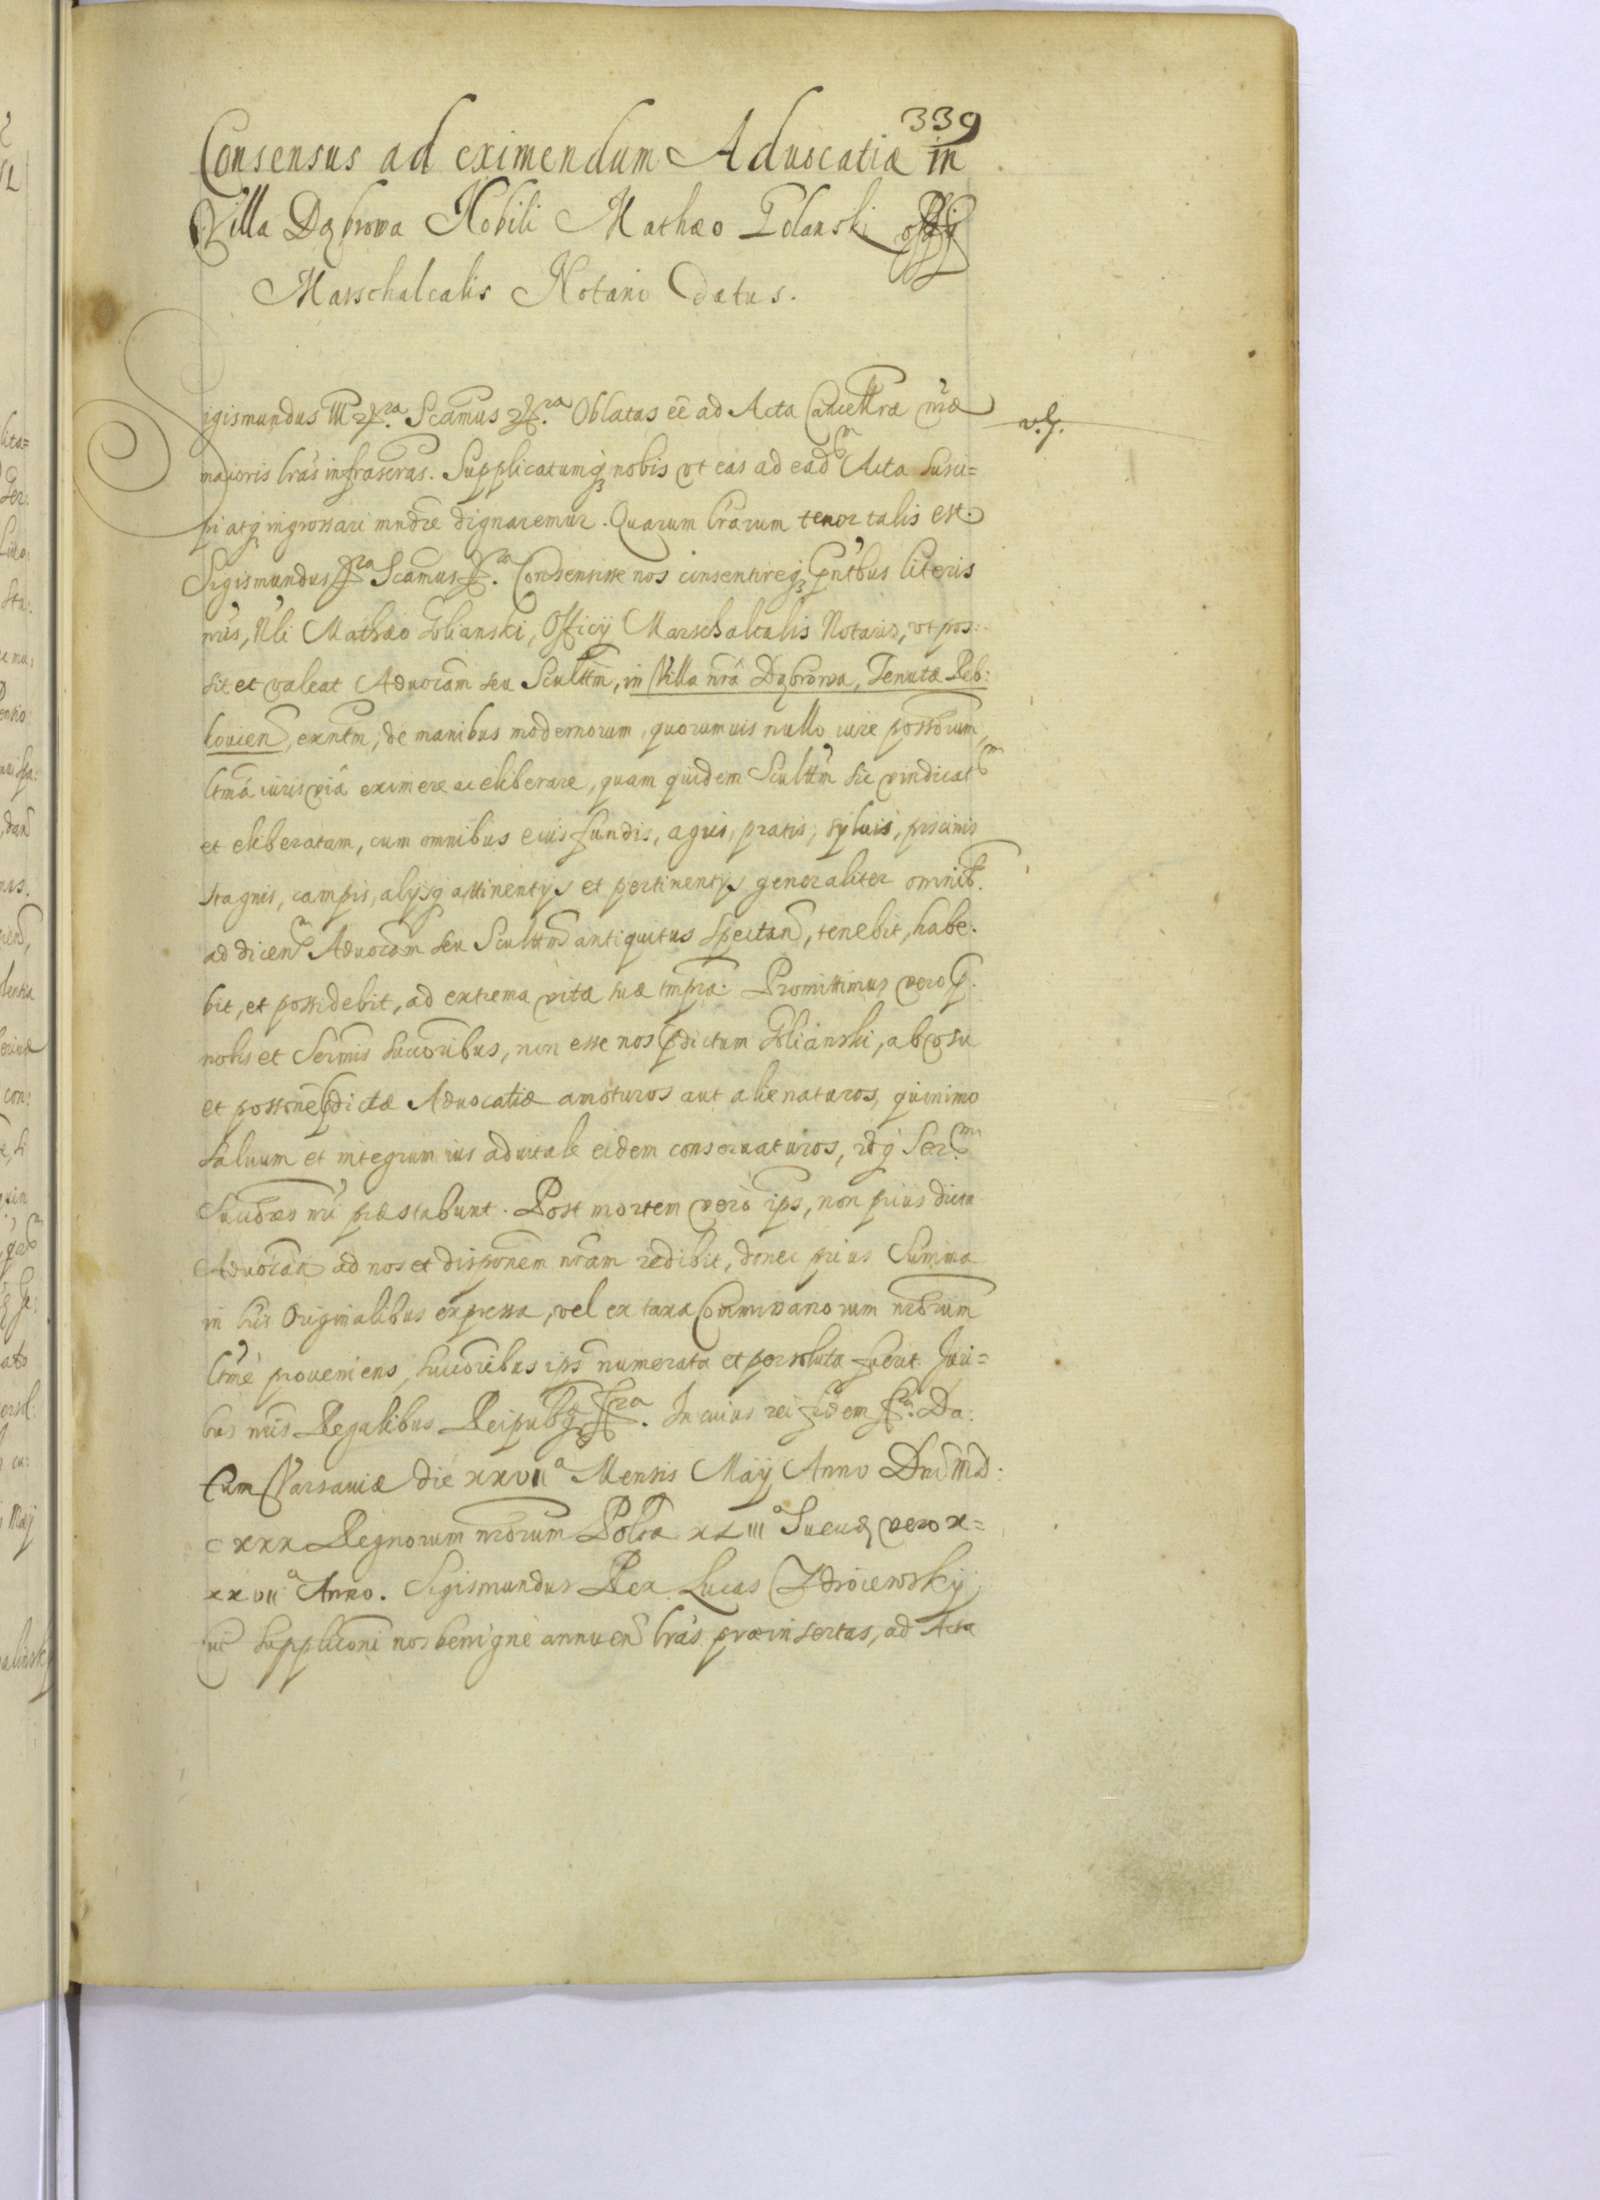 339
Consensus ad eximendum Aduocatiæ in
Villa Dąbrowa Nobili Mathæo Polanski Officij
Marschalcalis Notario Datus.
Sigismundus III &ra Scamus &ra Oblatas eē ad Acta Cancellræ nræ
v. g.
maioris lras infrascras. Supplicatumq nobis vt eas ad eadm Acta susci=
pi atq ingrossari mndre dignaremur. Quarum lrarum tenor talis est.
Sigismundus &ra Scamus &ra Consensisse nos consentireq pntbus literis
nris, Nli Mathæo Polianski, Officij Marschalcalis Notario, vt pos:
sit et valeat Aduocam seu Scultm, in Villa nra Dąbrowa, Tenutæ Reb:
kouien, exntm, de manibus modernorum, quorumuis nullo iure possorum,
ltma iuris via eximere ac eliberare, quam quidem Scultm sic vindicatm
et eliberatam, cum omnibus eius fundis, agris, pratis, syluis, piscinis
stagnis, campis, alijsq attinentijs et pertinentijs generaliter omnib.
ad dicen Aduocam seu Scultm antiquitus spectan, tenebit, habe:
bit, et possidebit, ad extrema vitæ suæ tmpra. Promittimus vero p.
nobis et Sermis succoribus, non esse nos pdictum Polianski, ab vsu
et possone pdictæ Aduocatiæ amoturos aut alienaturos, quinimo
saluum et integrum ius aduitale eidem conseruaturos, idq Serm
Succores nri præstabunt. Post mortem vero ips, non prius dicta
Aduocaa ad nos et disponem nram redibit, donec prius Summa
in lris Originalibus expressa, vel ex taxa Commissariorum nrorum
ltme proueniens, succoribus ips numerata et persoluta fuerit. Juri=
bus nris Regalibus Reipubq &ra. In cuius rei fidem &ra. Da:
tum Varsauiæ die XXVIIa Mensis Maij Anno Dni MD:
CXXX Regnorum nrorum Polæ XLIIIo Sueciæ vero X=
XXVIIo Anno. Sigismundus Rex Lucas Zdroiewsky
ui supplicōni nos benigne annuen lras præinsertas, ad Acta